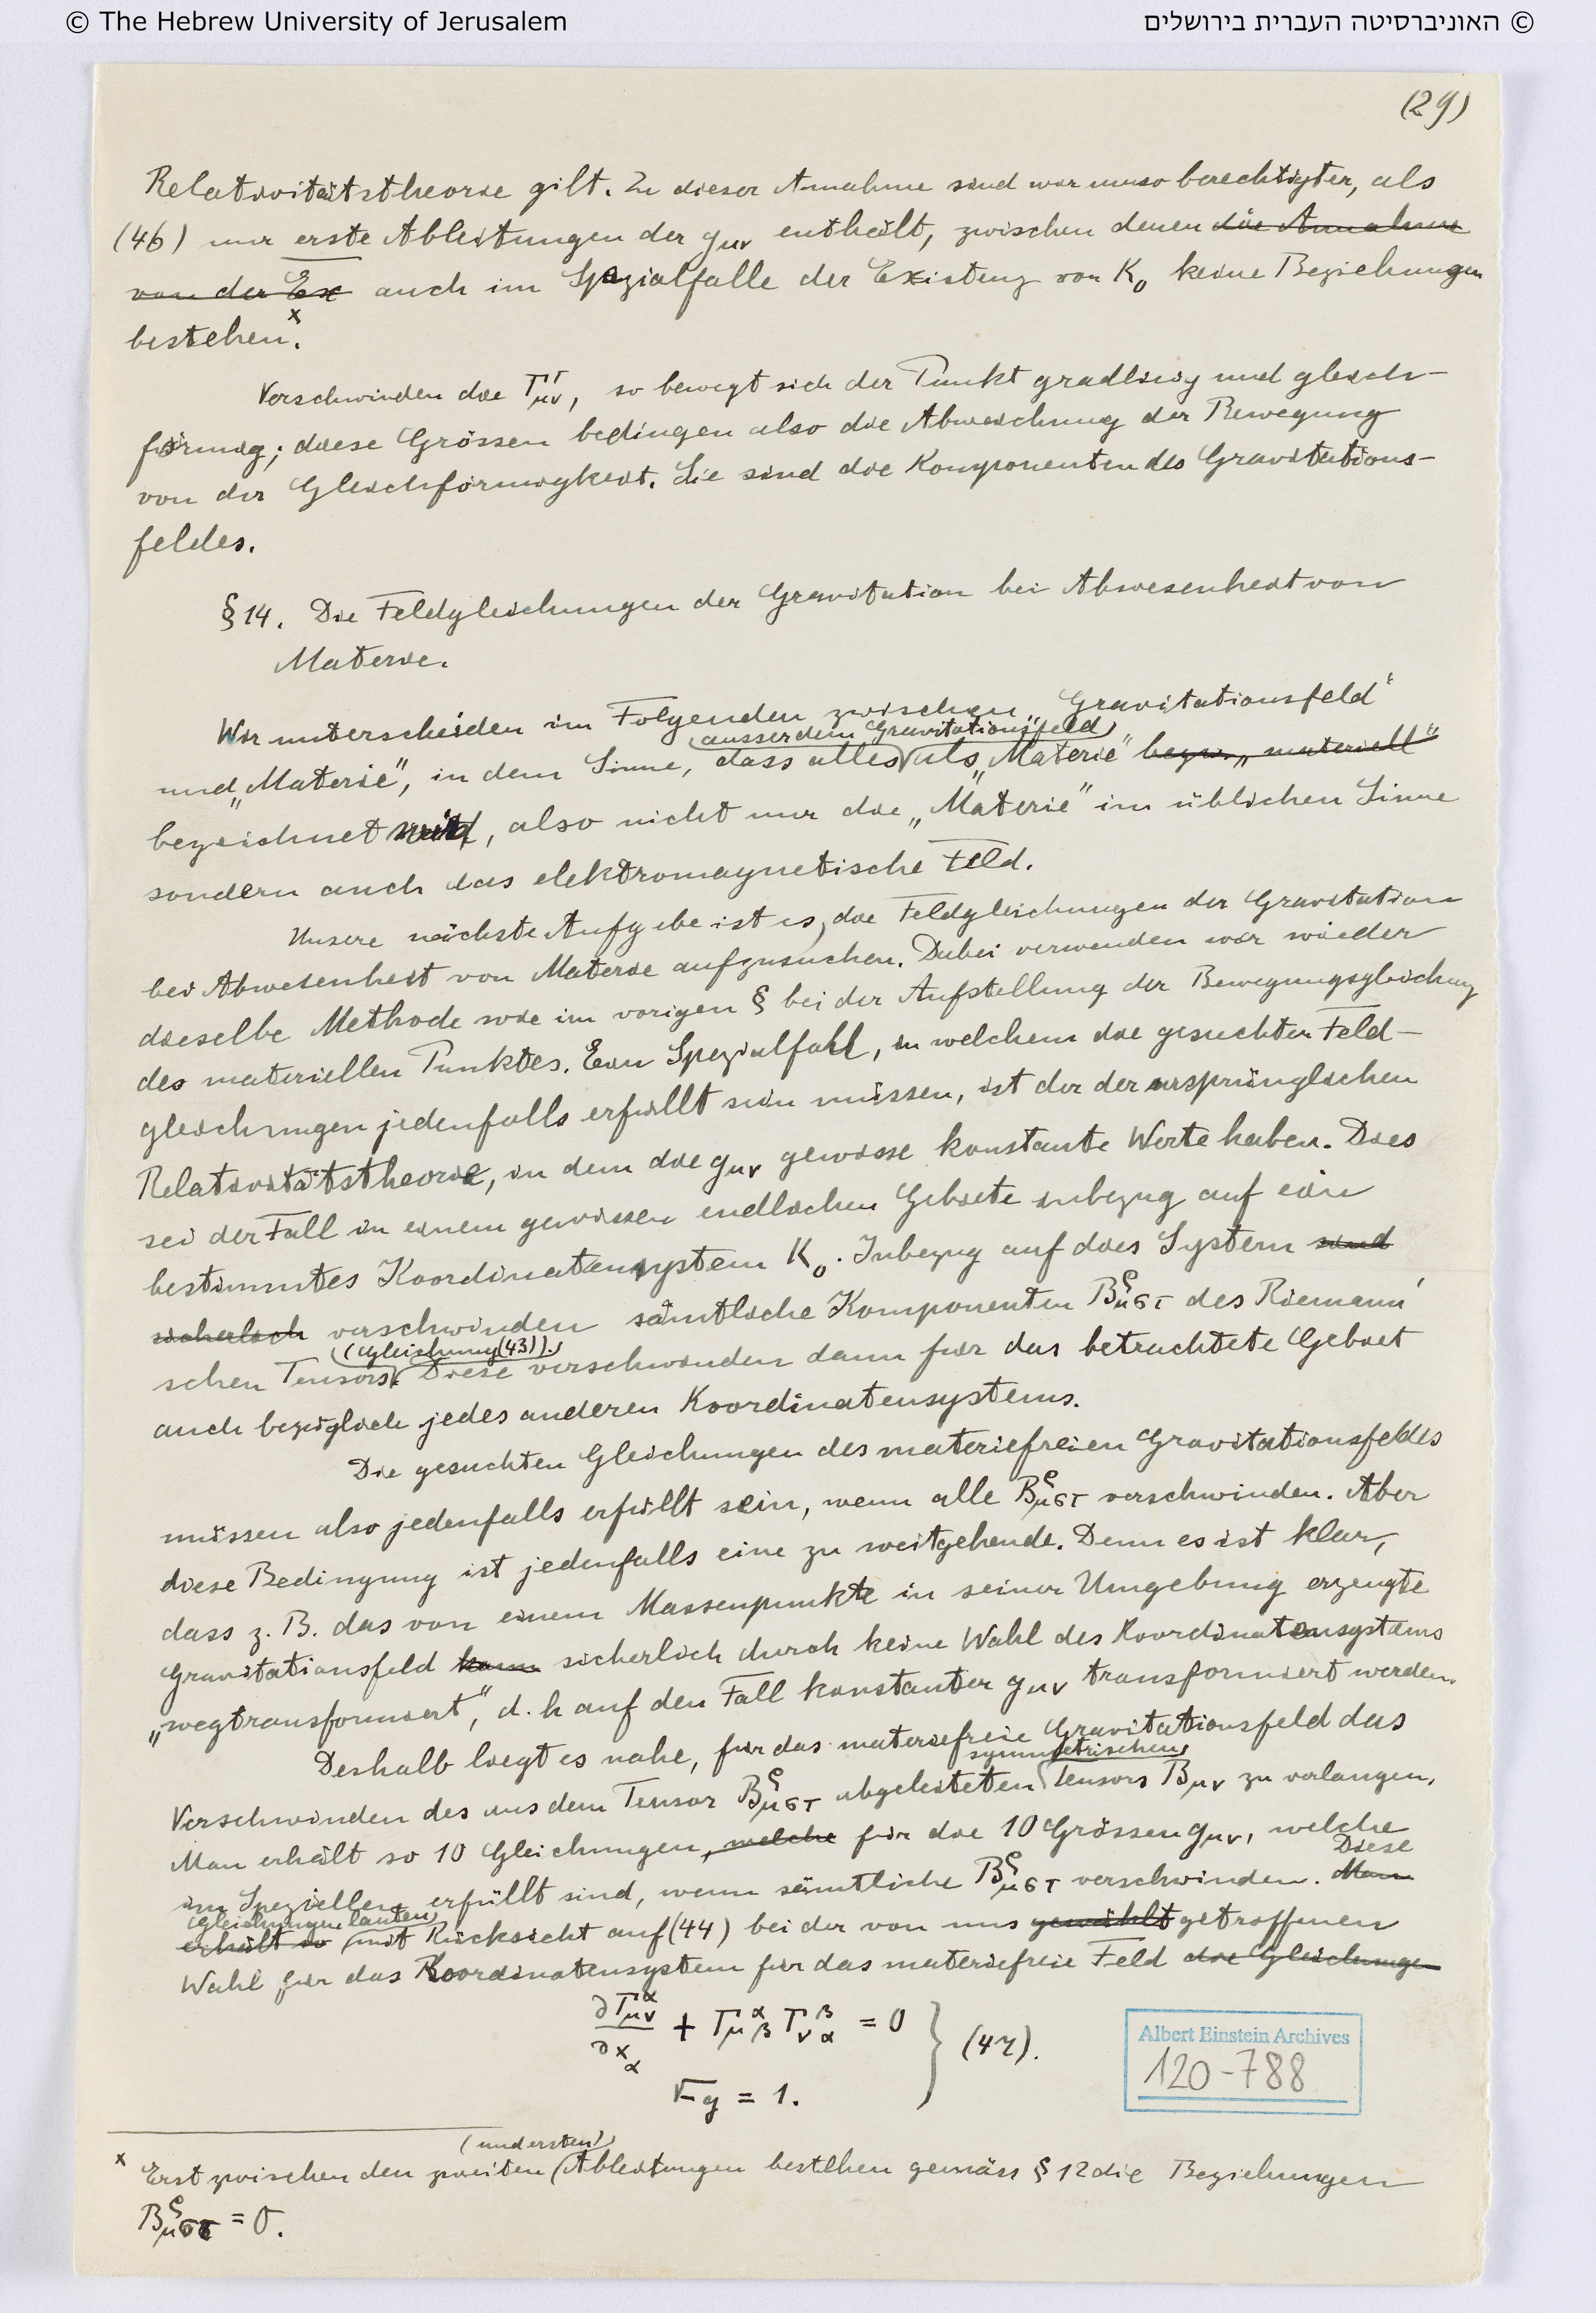 © The Hebrew University of Jerusalem
© האוניברסיטה העברית בירושלים
(29)
Relativitätstheorie gilt. Zu dieser Annahme sind wir umso berechtigter, als
(46) nur erste Ableitungen der gμν enthält, zwischen denen die Annahme
von der Ex auch im Spezialfalle der Existenz von K₀ keine Beziehungen
bestehen.ˣ
Verschwinden die Γ^τ_μν, so bewegt sich der Punkt gradlinig und gleich-
förmig; diese Grössen bedingen also die Abweichung der Bewegung
von der Gleichförmigkeit. Sie sind die Komponenten des Gravitations-
feldes.
§14. Die Feldgleichungen der Gravitation bei Abwesenheit von
Materie.
Wir unterscheiden im Folgenden zwischen „Gravitationsfeld“
(ausser dem Gravitationsfeld)
und „Materie“, in dem Sinne, dass alles als „Materie“ bezw. „materiell“
bezeichnet wird, also nicht nur die „Materie“ im üblichen Sinne
sondern auch das elektromagnetische Feld.
Unsere nächste Aufgabe ist es, die Feldgleichungen der Gravitation
bei Abwesenheit von Materie aufzusuchen. Dabei verwenden wir wieder
dieselbe Methode wie im vorigen § bei der Aufstellung der Bewegungsgleichung
des materiellen Punktes. Ein Spezialfall, in welchem die gesuchten Feld-
gleichungen jedenfalls erfüllt sein müssen, ist der der ursprünglichen
Relativitätstheorie, in dem die gμν gewisse konstante Werte haben. Dies
sei der Fall in einem gewissen endlichen Gebiete inbezug auf ein
bestimmtes Koordinatensystem K₀. Inbezug auf dies System sind
sicherlich verschwinden sämtliche Komponenten B^ρ_μστ des Riemann'
(Gleichung (43)).
schen Tensors. Diese verschwinden dann für das betrachtete Gebiet
auch bezüglich jedes anderen Koordinatensystems.
Die gesuchten Gleichungen des materiefreien Gravitationsfeldes
müssen also jedenfalls erfüllt sein, wenn alle B^ρ_μστ verschwinden. Aber
diese Bedingung ist jedenfalls eine zu weitgehende. Denn es ist klar,
dass z. B. das von einem Massenpunkte in seiner Umgebung erzeugte
Gravitationsfeld kann sicherlich durch keine Wahl des Koordinatensystems
„wegtransformiert“, d. h auf den Fall konstanter gμν transformiert werden.
Deshalb liegt es nahe, für das materiefreie Gravitationsfeld das
symmetrischen
Verschwinden des aus dem Tensor B^ρ_μστ abgeleiteten Tensors Bμν zu verlangen.
Man erhält so 10 Gleichungen, welche für die 10 Grössen gμν, welche
Diese
im Speziellen erfüllt sind, wenn sämtliche B^ρ_μστ verschwinden. Man
Gleichungen lauten
erhält so mit Rücksicht auf (44) bei der von uns gewählt getroffenen
Wahl für das Koordinatensystem für das materiefreie Feld die Gleichungen
∂Γ^α_μν/∂x_α + Γ^α_μβ Γ^β_να = 0
√-g = 1.
} (47).
Albert Einstein Archives
120-788
(und ersten)
x Erst zwischen den zweiten Ableitungen bestehen gemäss §12 die Beziehungen
B^ρ_μστ = 0.